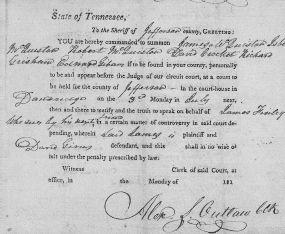 State of Tennessee,
To the Sheriff of Jefferson county, GREETING:
YOU are hereby commanded to summon James McQuistan
McQuistan Robert McQuistan David Crocket Richard
Grisham if to be found in your county, personally
to be and appear before the Judge of our circuit court, at a court to
be held for the county of Jefferson in the court-house in
Dandridge on the 3rd Monday in July next,
then and there to testify and the truth to speak on behalf of James
who sues by his in a certain matter of controversy in said court de-
pending, wherein Said James is plaintiff and
David defendant and this shall in no wise o-
mit under the penalty prescribed by law.
Witness Clerk of said Court, at
office, in the Monday of 181
Alex S. Outlaw Clk